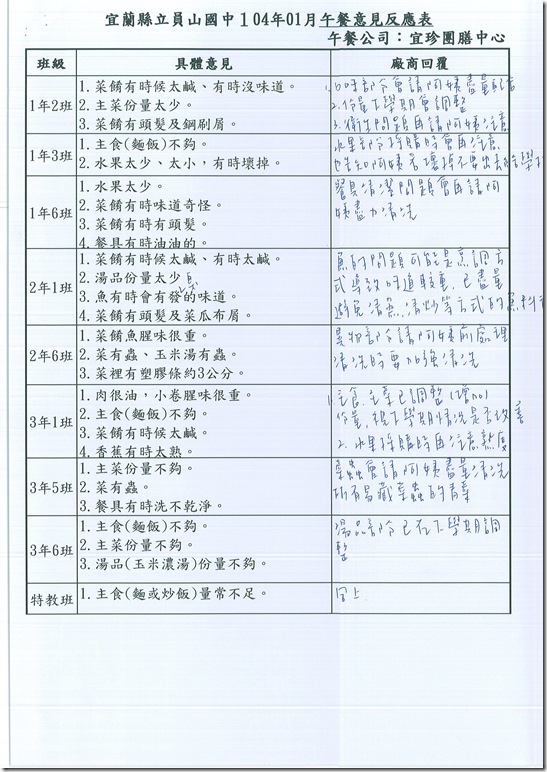 宜蘭縣立員山國中104年01月午餐意見反應表
午餐公司：宜珍團膳中心
班級 具體意見 廠商回覆
1年2班
1.菜餚有時候太鹹、有時沒味道。
2.主菜份量太少。
3.菜餚有頭髮及鋼刷屑。
2.份量下學期會調整
3.衛生問題再請阿姨注意
1年3班
1.主食(麵飯)不夠。
2.水果太少、太小，有時壞掉。
水果部分採購時會再注意.
1年6班
1.水果太少。
2.菜餚有時味道奇怪。
3.菜餚有時有頭髮。
4.餐具有時油油的。
餐具清潔問題會再請阿
姨盡力清洗
2年1班
1.菜餚有時候太鹹、有時太鹹。
2.湯品份量太少
3.魚有時會有發臭的味道。
4.菜餚有頭髮及菜瓜布屑。
魚的問題可能是烹調方
式導致味道較重,已盡量
避免清魚,清炒等方式的魚料
2年6班
1.菜餚魚腥味很重。
2.菜有蟲、玉米湯有蟲。
3.菜裡有塑膠條約3公分。
異物部分請阿姨前處理
清洗時要加強清洗
3年1班
1.肉很油，小卷腥味很重。
2.主食(麵飯)不夠。
3.菜餚有時候太鹹。
4.香蕉有時太熟。
1.主食.主菜已調整(增加)
份量,視下學期情況是否改善
2.水果採購時再注意熟度
3年5班
1.主菜份量不夠。
2.菜有蟲。
3.餐具有時洗不乾淨。
菜蟲會請阿姨盡量清洗
所有易藏菜蟲的青菜
3年6班
1.主食(麵飯)不夠。
2.主菜份量不夠。
3.湯品(玉米濃湯)份量不夠。
湯品部分已在下學期調
整
特教班
1.主食(麵或炒飯)量常不足。
同上